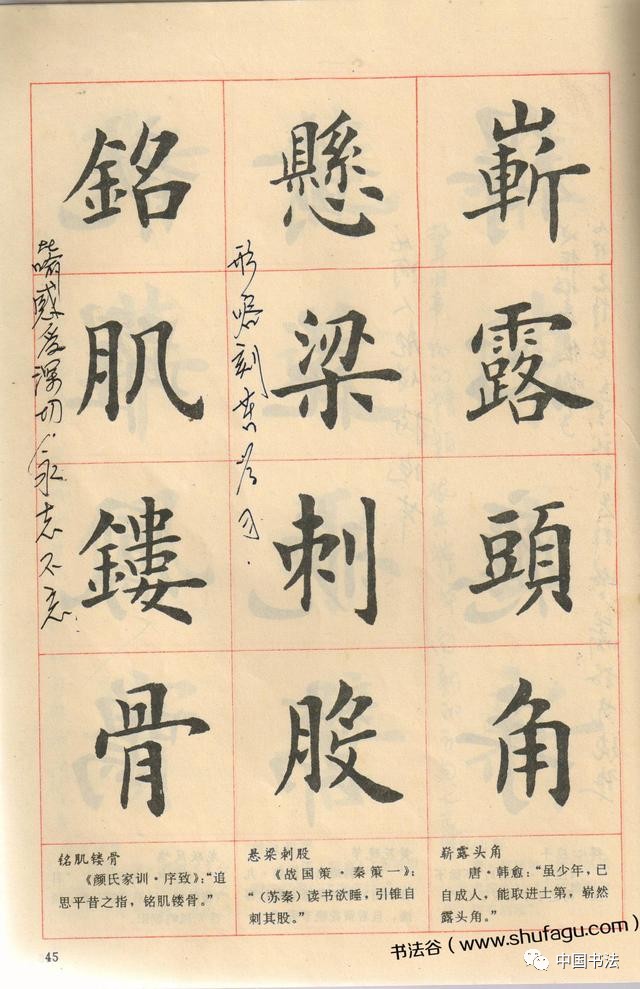 嶄露頭角
懸梁刺股
刻苦学习.
銘肌鏤骨
比喻感受深切.永志不忘
崭露头角
唐·韩愈：“虽少年，已
自成人，能取进士第，崭然
露头角。”
悬梁刺股
《战国策·秦策一》：
“（苏秦）读书欲睡，引锥自
刺其股。”
铭肌镂骨
《颜氏家训·序致》：“追
思平昔之指，铭肌镂骨。”
45
书法谷（www.shufagu.com
中国书法